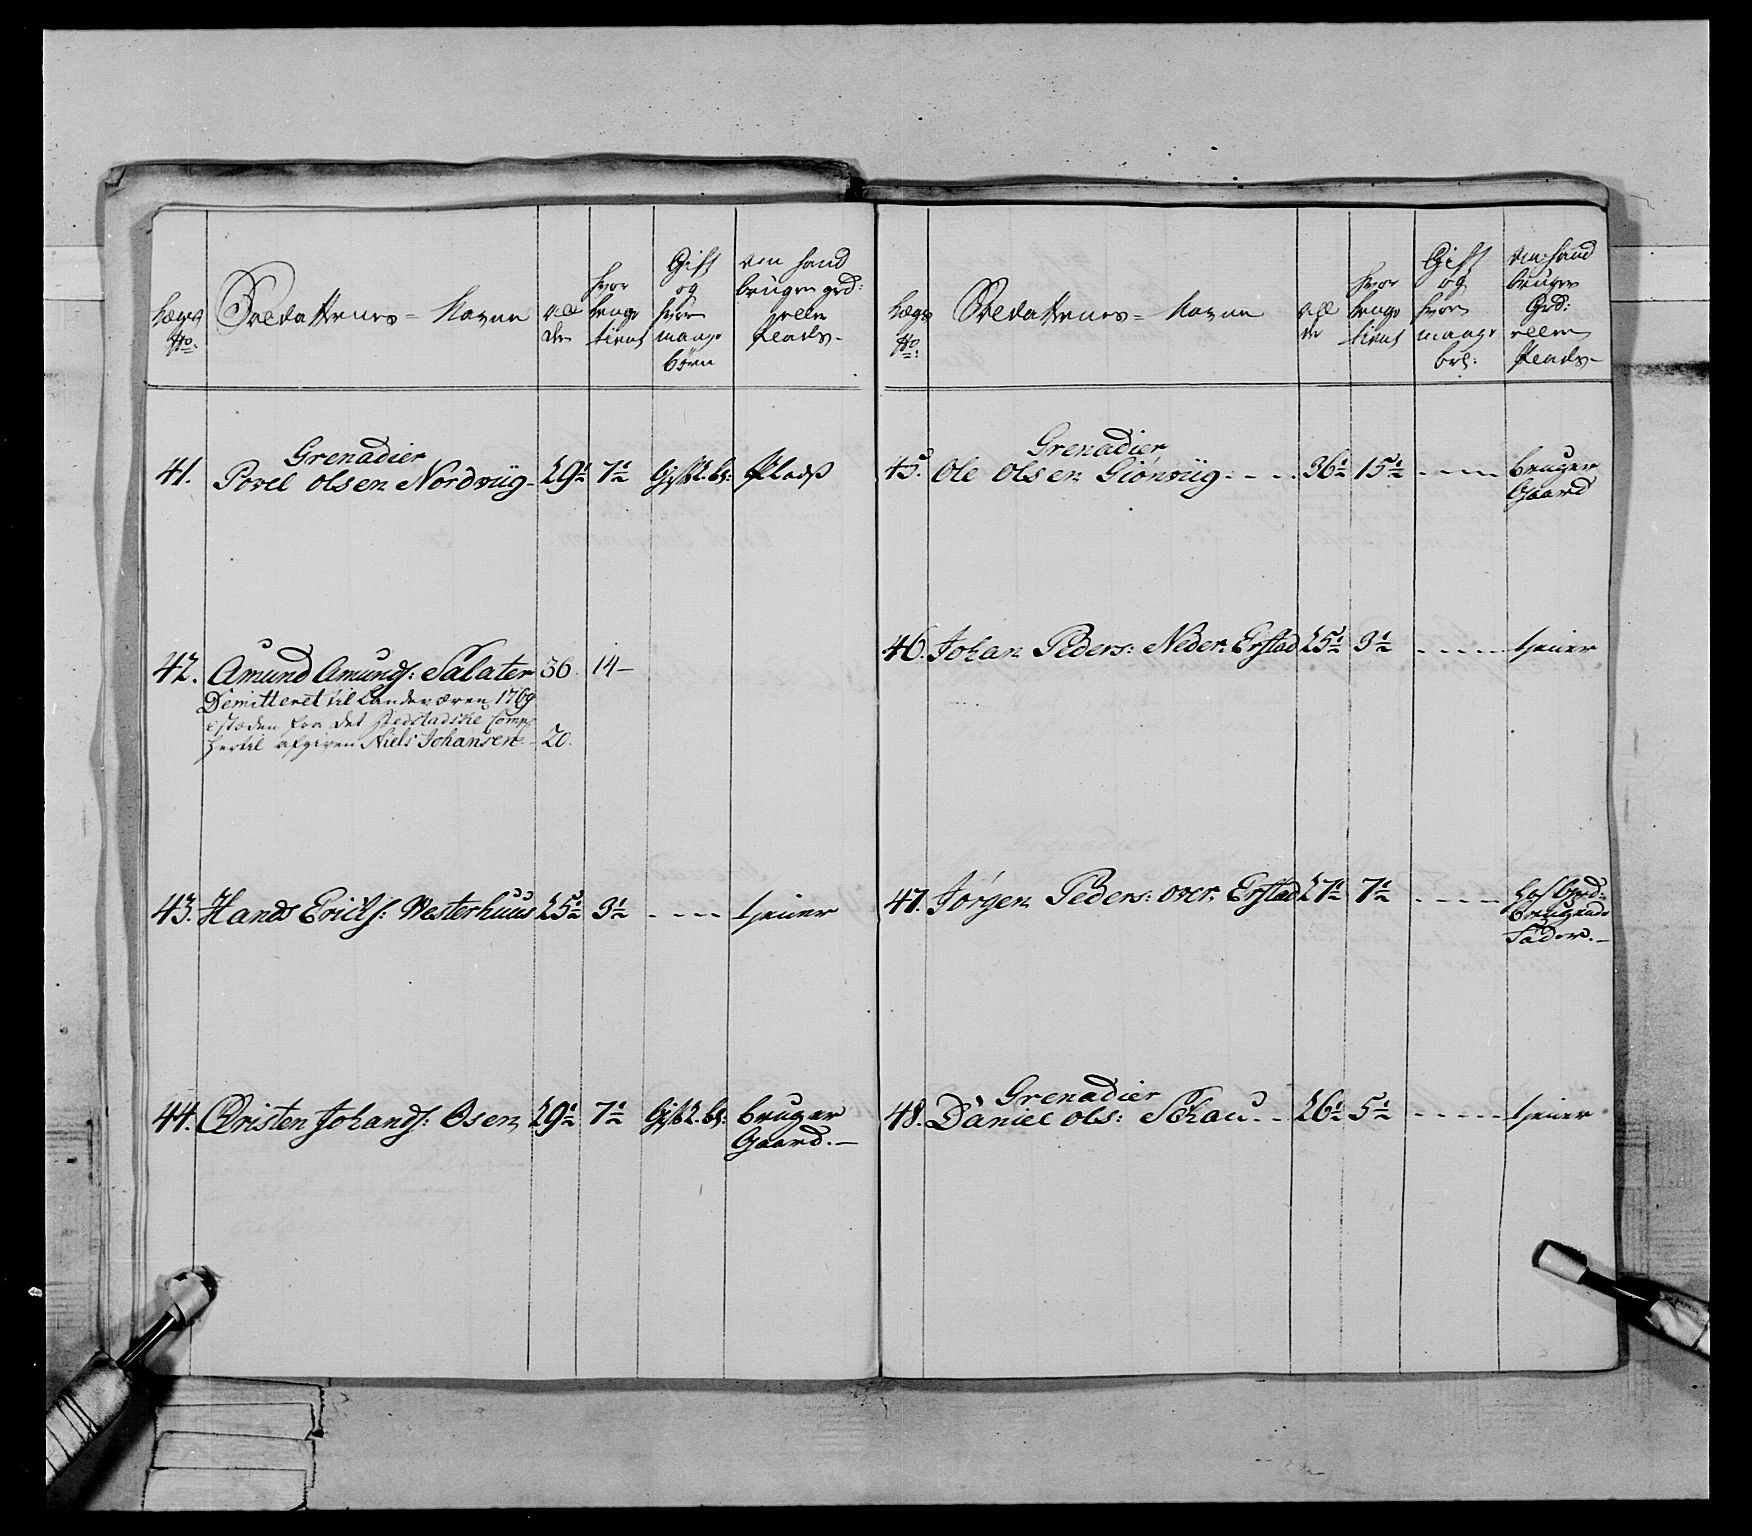 Lægs No: Soldatternes = Navne All der hvor lenge tient Gift og hvor mange børn om hand bruger grd: heller Plads-
41. Grenadier
Povel Olsen Nordviig - 29½ 7½ Gift 2. br: Plads
42. Amund Amunds: Salater 36. 14 -
Demitteret til Landeværen 1769
istæden fra det Comp:
hertil afgiven Niels Johansen - 20.
43. Hands Ericks: Westerhuus 25½ 3½ - - - - tiener
44. Christen Johands: Osen 29½ 7½ Gift 2. br: bruger
Gaard. -
Lægs No: Soldatternes = Navne All der hvor lenge tient Gift og hvor mange brn: om hand bruger Grd: ellem Plads -
45. Grenadier
Ole Olsen Giønviig. - - . 36½ 15½ - - - - bruger
Gaard
46. Johan Peders: Neder Erstad 25½ 3½ - - - - - tiener
47. Jørgen Peders: over Erstad 27½ 7½ - - - - hos
brugende
Fader. -
48. Grenadier
Daniel Ols: Schau. - - 26½ 5½ - - - - - tiener